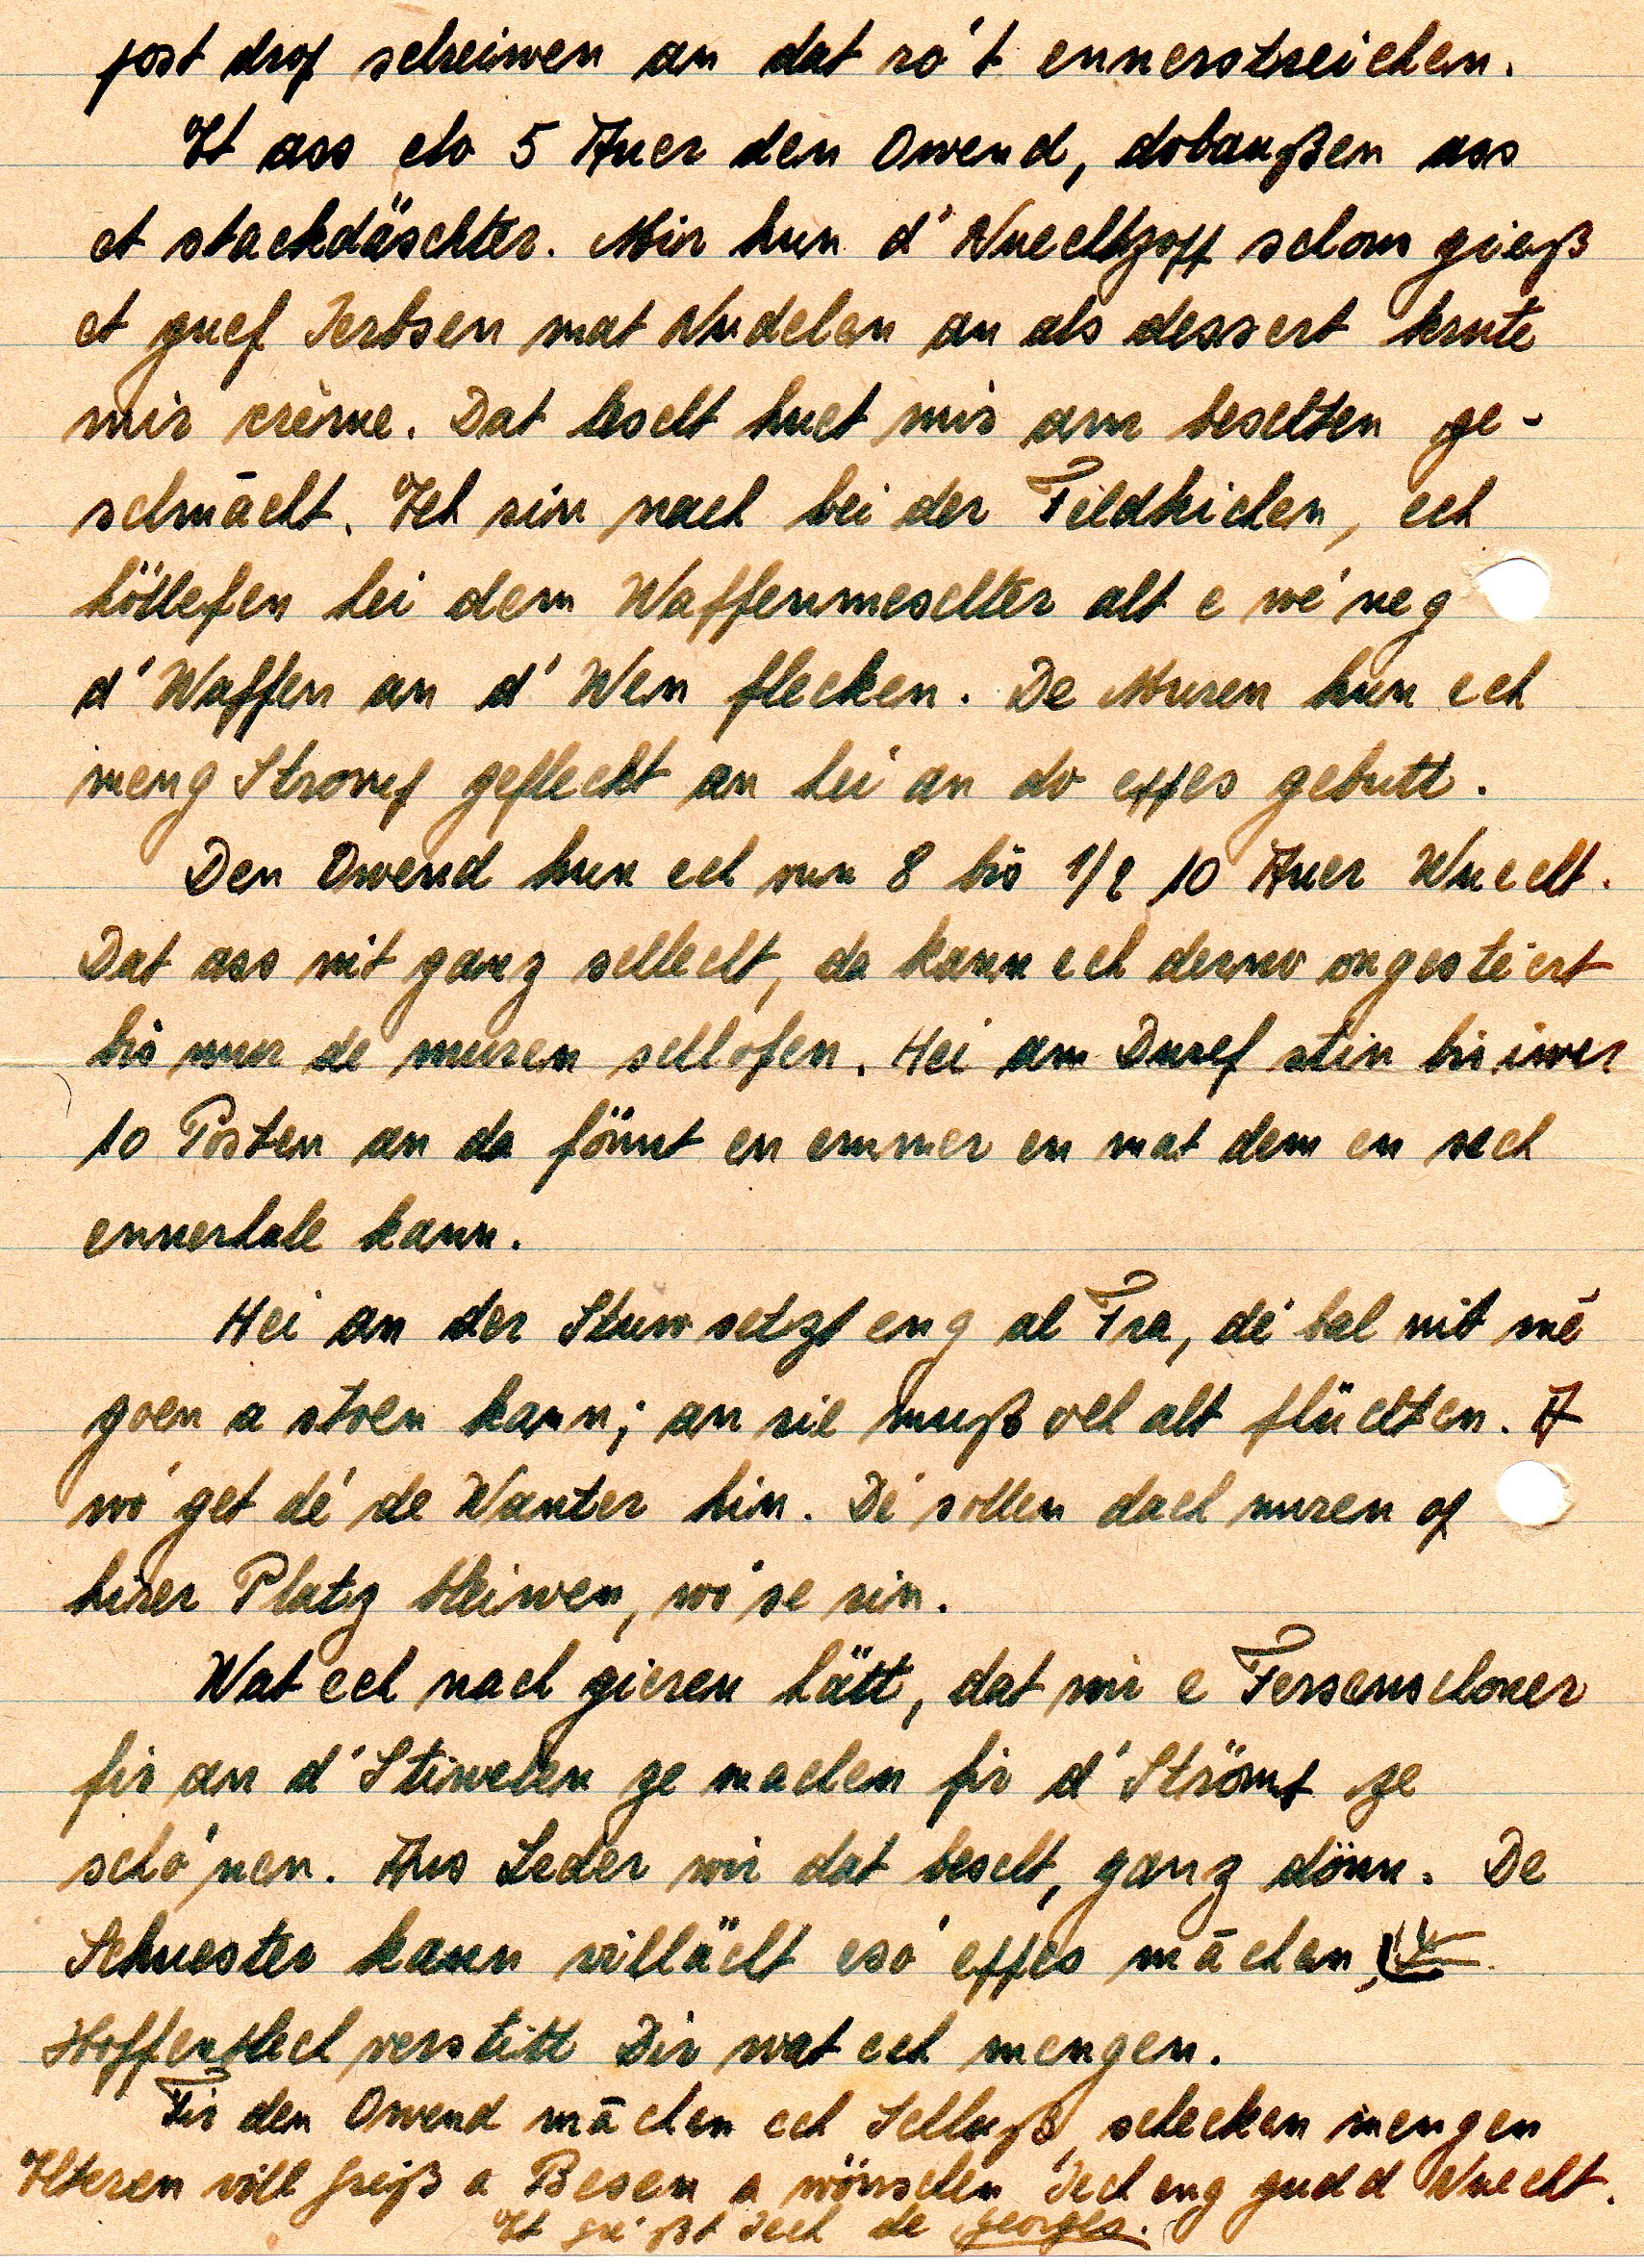 post drof schreiwen an dat ro't ennerstreichen.
Et ass elo 5 Auer den Owend, dobaußen ass
et stackdäschter. Mir hun d'Nuechtzopp schon gieß
et guef Ierbsen mat Nudelen an als dessert krute
mir crème. Dat lescht huet mir am beschten ge-
schmācht. Ech sin nach bei der Feldkichen, ech
höllefen hei dem Waffenmeschter alt e wé'neg
d'Waffen an d'Wen flecken. De Muren hun ech
meng Stromp geflecht an hei an do eppes gebutt.
Den Owend hun ech vun 8 bis 1/2 10 Auer Wuecht.
Dat ass nit ganz schlecht, da kann ech derno ongestéiert
bis mur de muren schlofen. Hei am Duref stin bis iwer
10 Posten an da fönnt en emmer en mat dem en sech
ennerhale kann.
Hei an der Stuw setzt eng al Fra, dé bal nit mé
goen a stoen kann; an sie muß och alt flüchten. A
wo' get dé de Wanter hin. Dé sollen dach muren op
hirer Platz bleiwen, wo'se sin.
Wat ech nach gieren hätt, dat wir e Fersenschoner
fir an d'Stiwelen ze machen fir d'Strömp ze
scho'nen. Aus Leder wir dat bescht, ganz dönn. De
Schuester kann villächt eso' eppes māchen.
Hoffentlech verstitt Dir wat ech mengen.
Fir den Owend māchen ech Schluß, schecken mengen
Elteren vill Greiß a Besen a wönschen Iech eng gudd Nuecht.
Et gré'ßt Iech de Georges.